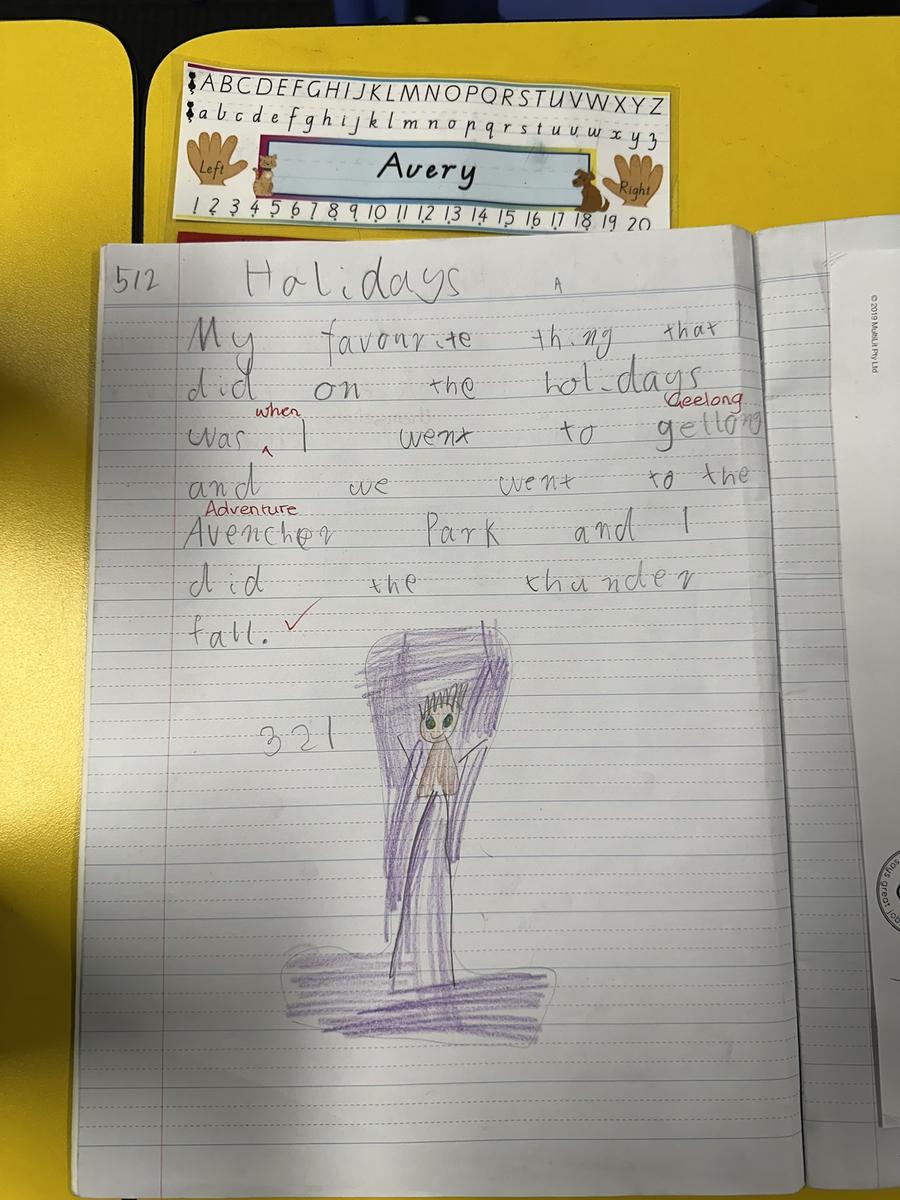 ABCDEFGHIJKLMNOPQRSTUVWXYZ
a b c d e f g h i j k l m n o p q r s t u v w x y z
Left
Avery
Right
1 2 3 4 5 6 7 8 9 10 11 12 13 14 15 16 17 18 19 20
5/2 Holidays A
My favourite thing that I
did on the holidays
when Geelong
was ^ I went to gellong
and we went to the
Adventure
Avencher Park and I
did the thunder
fall. ✓
321
© 2019 MultiLit Pty Ltd
says great